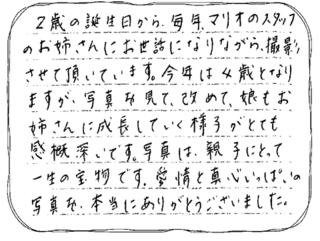 2歳の誕生日から、毎年、マリオのスタッフ
のお姉さんにお世話になりながら、撮影
させて頂いています。今年は4歳となり
ますが、写真を見て、改めて、娘もお
姉さんに成長していく様子がとても
感慨深いです。写真は、親子にとって
一生の宝物です。愛情と真心いっぱいの
写真を、本当にありがとうございました。